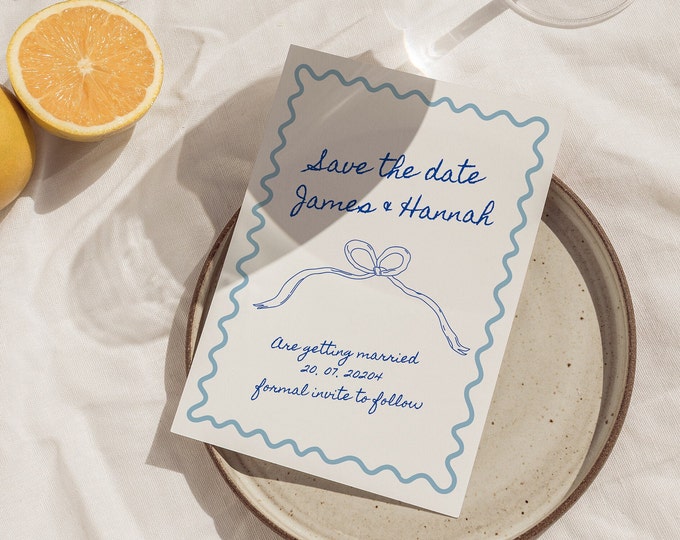 Save the date
James & Hannah
Are getting married
20. 07. 20204
formal invite to follow